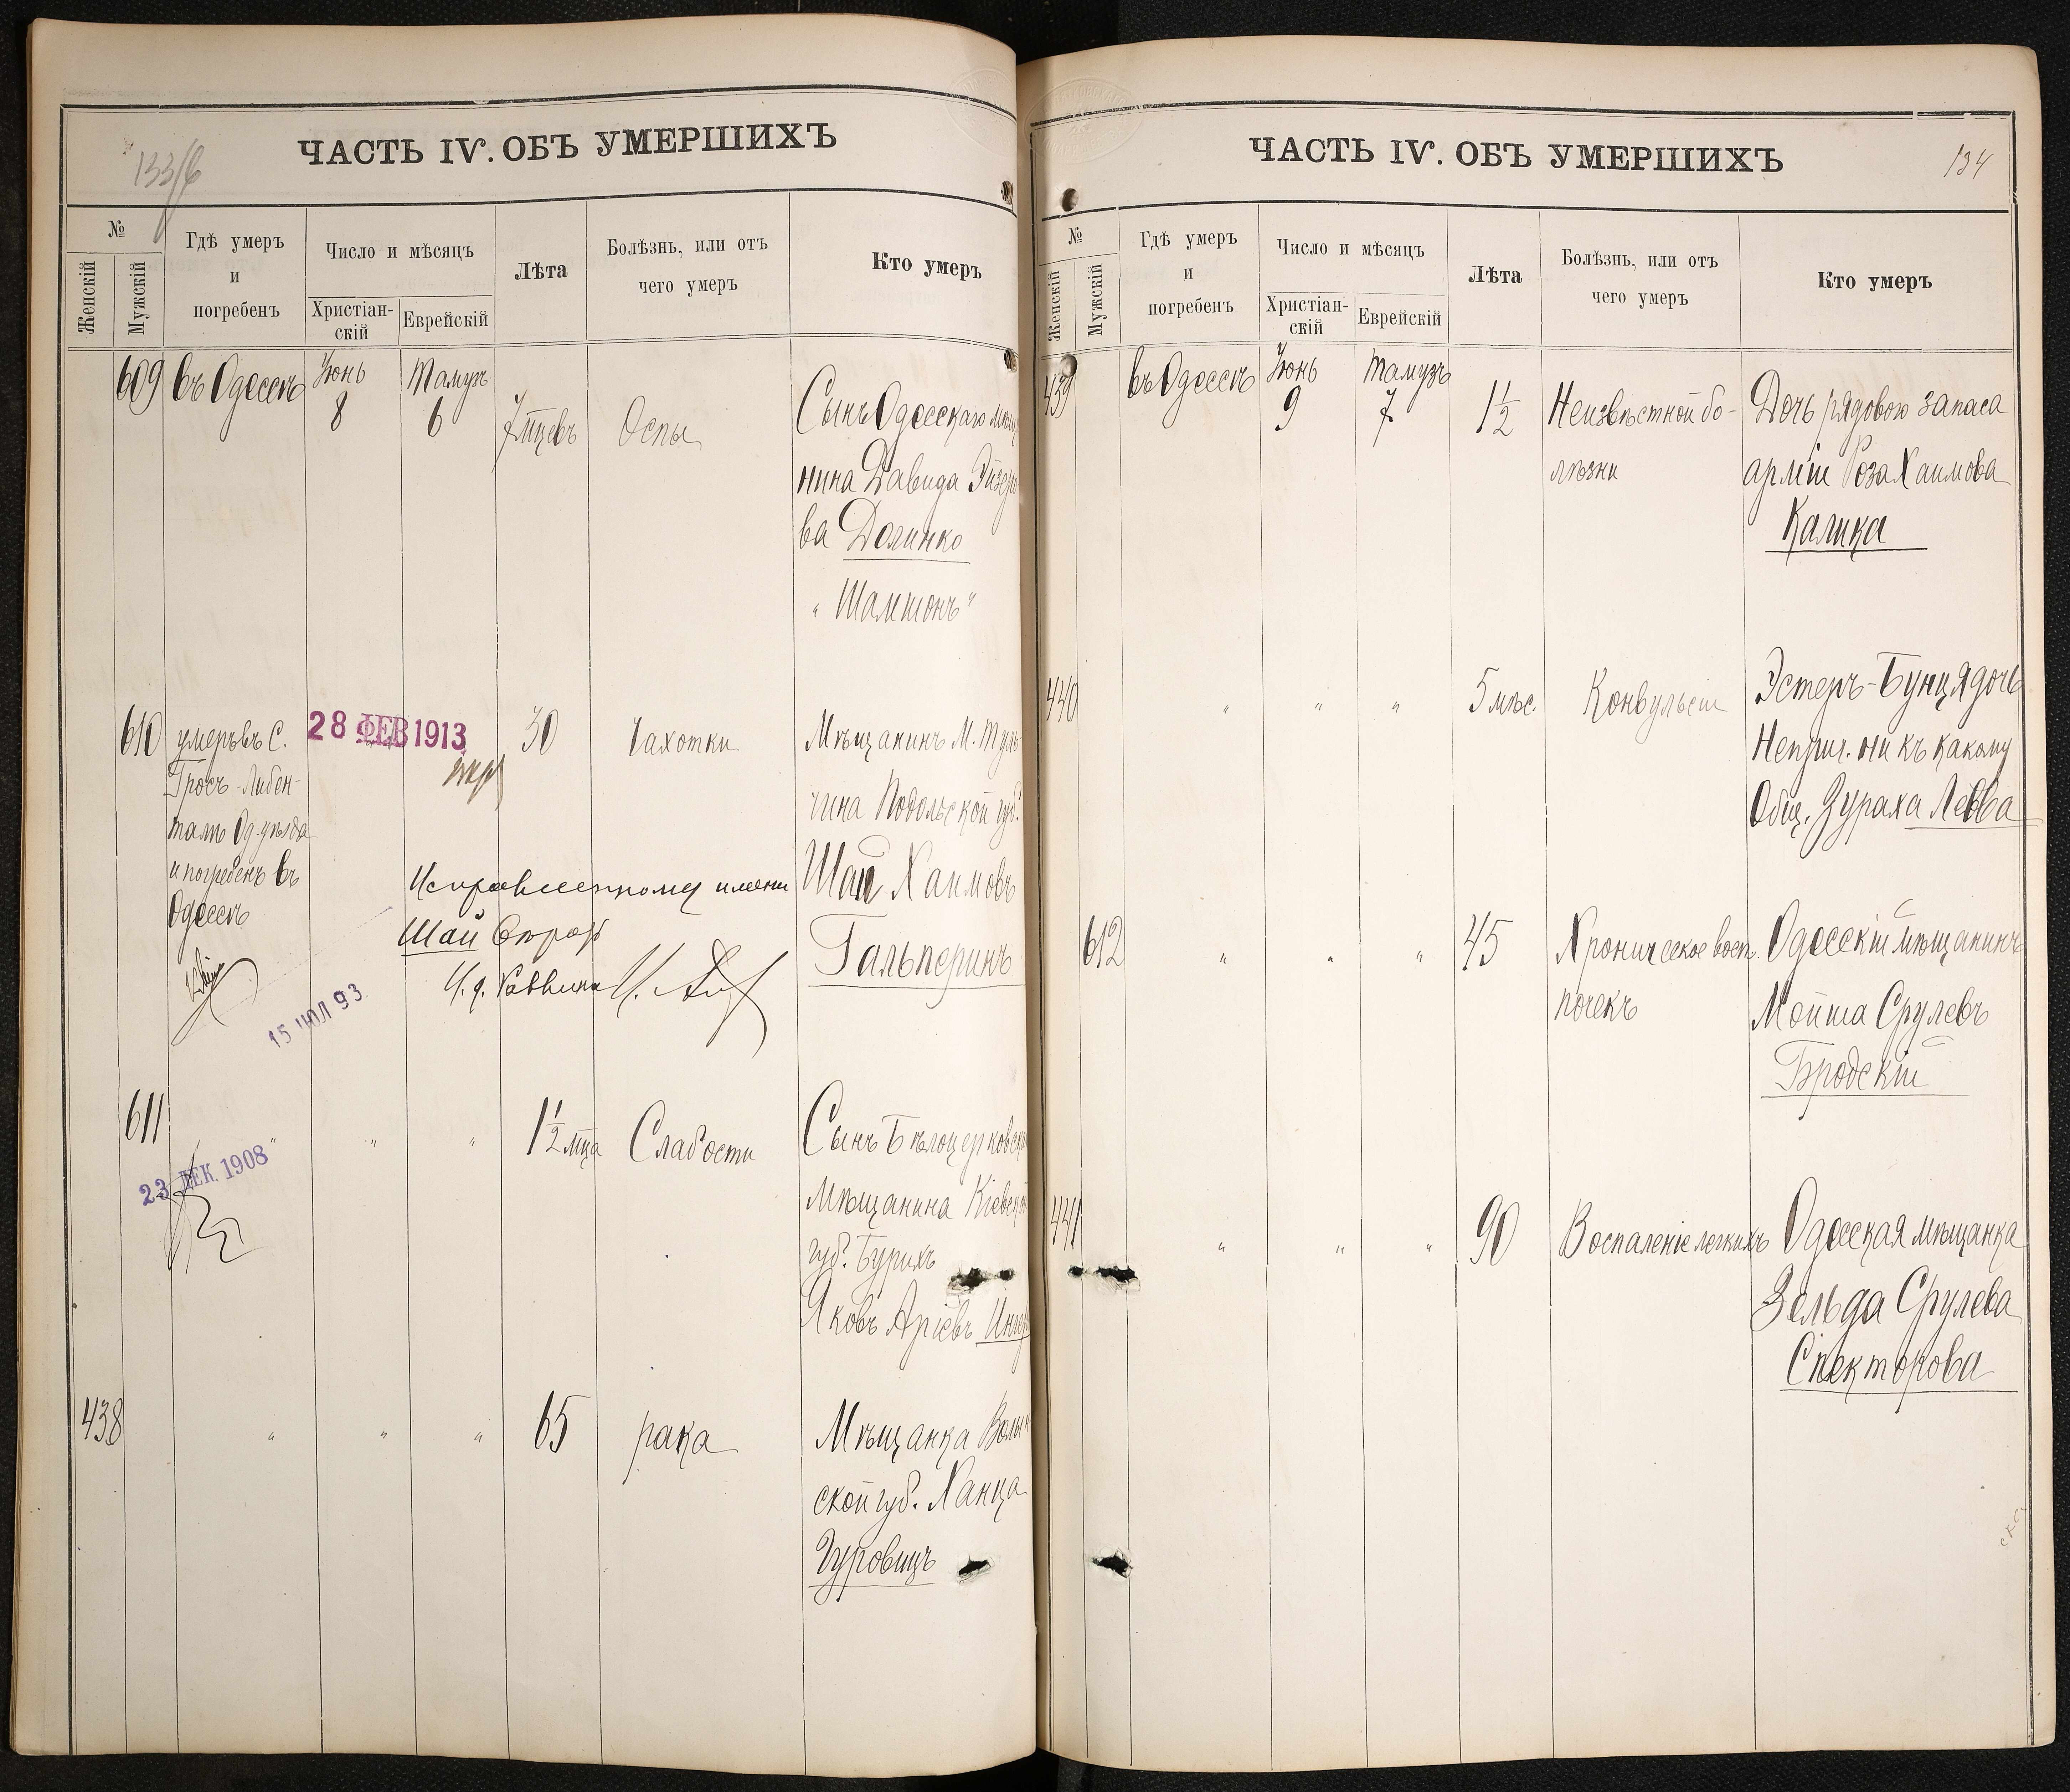 133/б
ЧАСТЬ IV. ОБЪ УМЕРШИХЪ
№
Женскій
Мужскій
Гдѣ умеръ
и
погребенъ
Число и мѣсяцъ
Христіан-
скій
Еврейскій
Лѣта
Болѣзнь, или отъ
чего умеръ
Кто умеръ
609 въ Одессѣ Іюнь 8 Тамузъ 6 7 мцевъ Оспы
Сынъ Одесскаго мѣщ
нина Давида
ва Долинко
"Шамшонъ"
610
умеръ въ С.
Гросъ-Либен-
талѣ Од. уѣзда
и погребенъ въ
Одессѣ
28 ФЕВ 1913
30 Чахотки
Мѣщанинъ М. Туль
чина Подольской губ.
Шая Хаимовъ
Гальперинъ
Исправленному имени
Шаи вѣрить
И. д. Раввина
15 ИЮЛ 93.
611 " " " 1½ мца Слабости
23 ДЕК. 1908
Сынъ Бѣлоцерковск
Мѣщанина Кіевской
губ. Бурихъ
Яковъ Аріевъ
438 " " " 65 рака
Мѣщанка Волын
ской губ. Ханца
Гуровицъ
134
ЧАСТЬ IV. ОБЪ УМЕРШИХЪ
№
Женскій
Мужскій
Гдѣ умеръ
и
погребенъ
Число и мѣсяцъ
Христіан-
скій
Еврейскій
Лѣта
Болѣзнь, или отъ
чего умеръ
Кто умеръ
439 въ Одессѣ Іюнь 9 Тамузъ 7 1½
Неизвѣстной бо-
лѣзни
Дочь рядового запаса
арміи Роза Хаимова
Калика
440 " " " 5 мѣс. Конвульсіи
Эстеръ-Бунця дочь
Неприч. ни къ какому
Общ. Зураха Левва
612 " " " 45
Хроническое восп.
почекъ
Одесскій мѣщанинъ
Мойша Срулевъ
Бродскій
441 " " " 90 Воспаленіе легкихъ
Одесская мѣщанка
Зельда Срулева
Спекторова